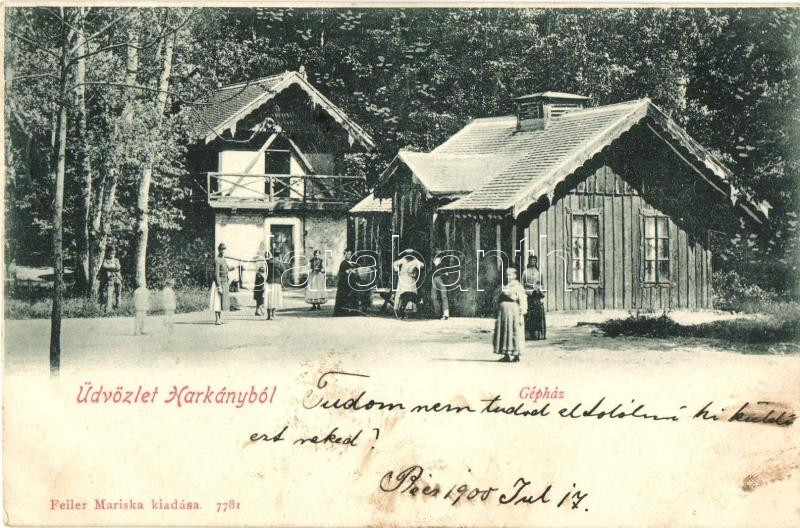 darabanth
Üdvözlet Harkányból
Gépház
Tudom nem tudod eltalálni ki küldi
ezt neked?
Pécs 1900 Jul 17.
Feiler Mariska kiadása. 7781